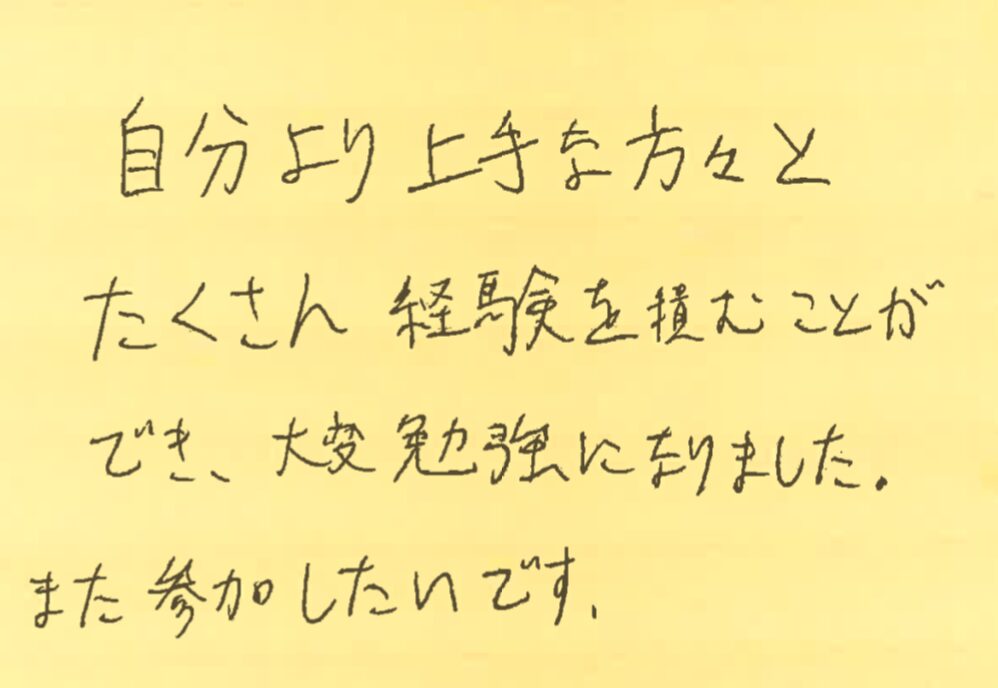 自分より上手な方々と
たくさん経験を積むことが
でき、大変勉強になりました.
また参加したいです.